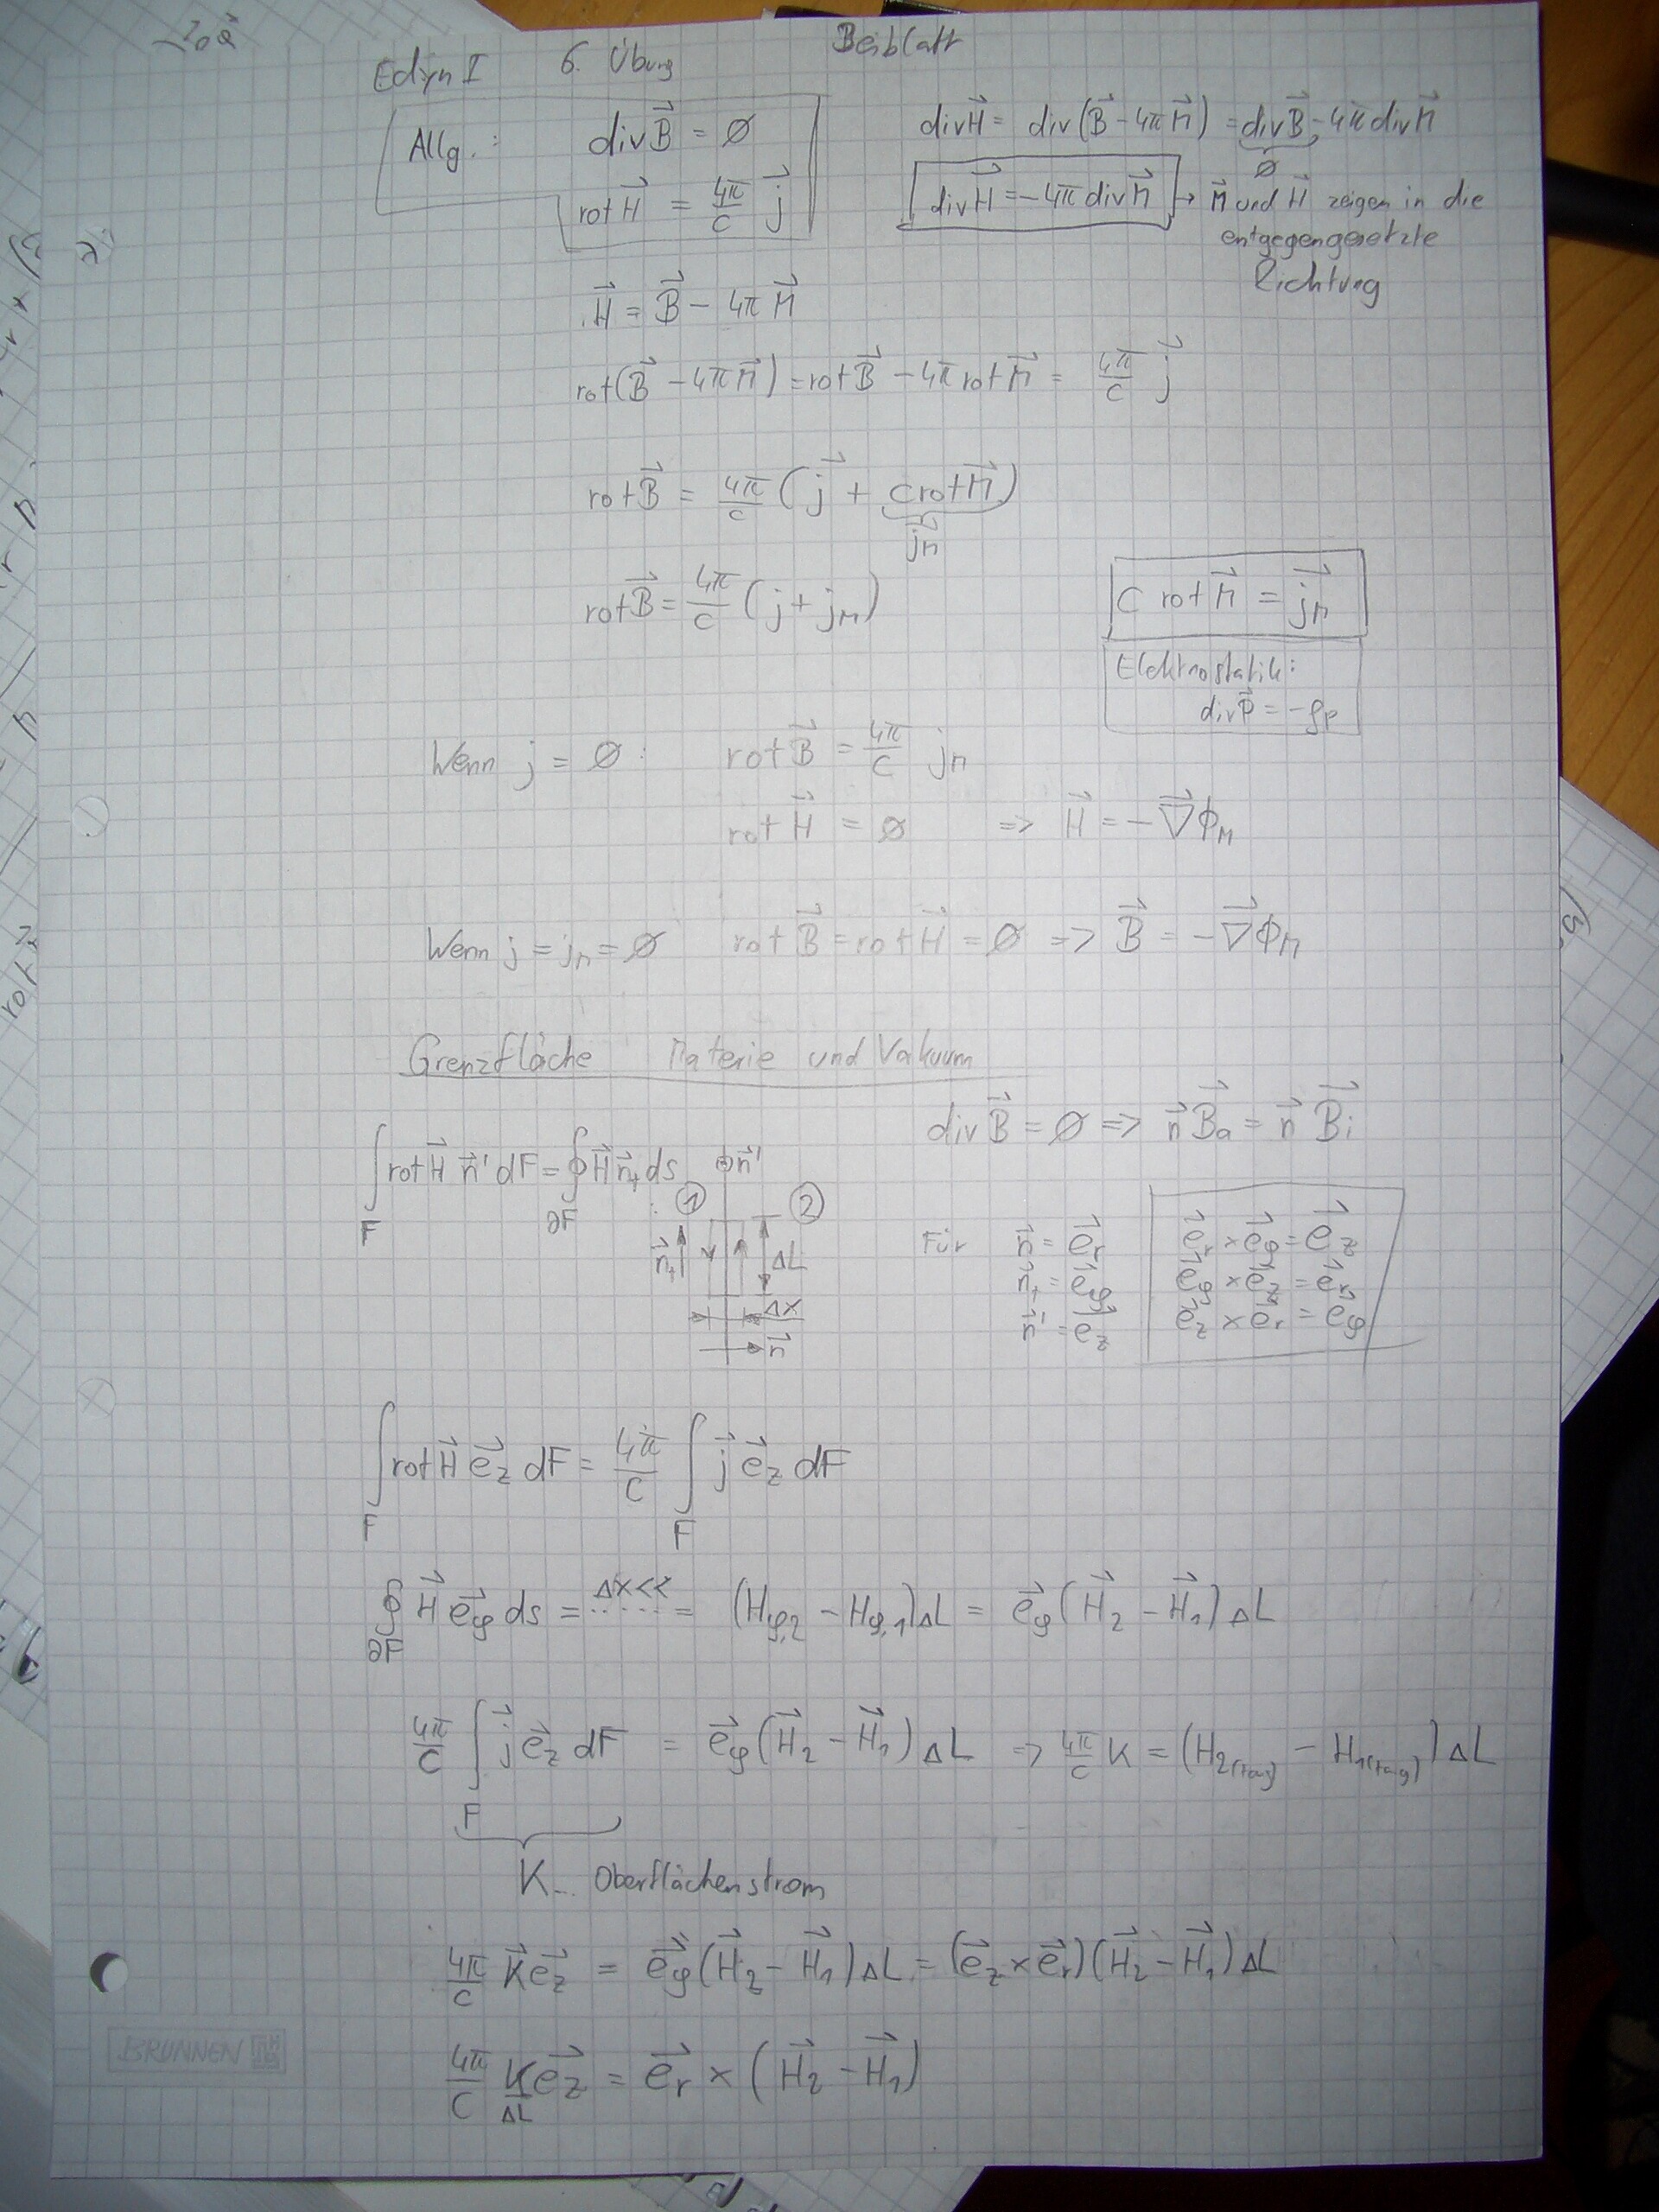 Edyn I 6. Übung Beiblatt
Allg.: div B⃗ = ∅
rot H⃗ = 4π/c j⃗
div H⃗ = div (B⃗ - 4π M⃗) = div B⃗ - 4π div M⃗
∅
div H⃗ = - 4π div M⃗ → M⃗ und H⃗ zeigen in die
entgegengesetzte
Richtung
H⃗ = B⃗ - 4π M⃗
rot (B⃗ - 4π M⃗) = rot B⃗ - 4π rot M⃗ = 4π/c j⃗
rot B⃗ = 4π/c (j⃗ + c rot M⃗)
j⃗M
rot B⃗ = 4π/c (j + jM)
c rot M⃗ = j⃗M
Elektrostatik:
div P⃗ = -ρP
Wenn j = ∅ : rot B⃗ = 4π/c jM
rot H⃗ = ∅ => H⃗ = - ∇⃗ϕM
Wenn j = jM = ∅ rot B⃗ = rot H⃗ = ∅ => B⃗ = - ∇⃗ϕM
Grenzfläche Materie und Vakuum
div B⃗ = ∅ => n⃗ B⃗a = n⃗ B⃗i
∫F rot H⃗ n⃗' dF = ∮∂F H⃗ n⃗t ds
n⃗'
① ②
n⃗t ΔL
Δx
n⃗
Für n⃗ = e⃗r
n⃗t = e⃗φ
n⃗' = e⃗z
e⃗r × e⃗φ = e⃗z
e⃗φ × e⃗z = e⃗r
e⃗z × e⃗r = e⃗φ
∫F rot H⃗ e⃗z dF = 4π/c ∫F j⃗ e⃗z dF
∮∂F H⃗ e⃗φ ds = Δx<< ..... = (Hφ,2 - Hφ,1) ΔL = e⃗φ (H⃗2 - H⃗1) ΔL
4π/c ∫F j⃗ e⃗z dF = e⃗φ (H⃗2 - H⃗1) ΔL => 4π/c K = (H2(tang) - H1(tang)) ΔL
K... Oberflächenstrom
4π/c K⃗ e⃗z = e⃗φ (H⃗2 - H⃗1) ΔL = (e⃗z × e⃗r) (H⃗2 - H⃗1) ΔL
4π/c K/ΔL e⃗z = e⃗r × (H⃗2 - H⃗1)
BRUNNEN